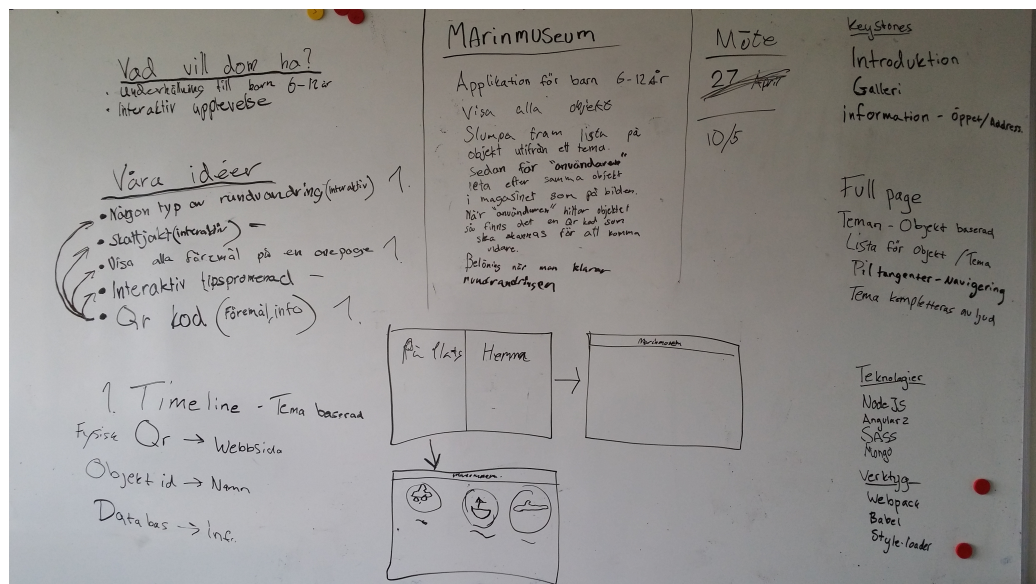 Vad vill dom ha?
• Underhållning till barn 6-12år
• Interaktiv upplevelse
Våra idéer
• Någon typ av rundvandring (interaktiv) 1.
• Skattjakt (interaktiv) –
• Visa alla föremål på en onepage 1.
• Interaktiv tipspromenad –
• Qr kod (Föremål, info) 1.
1. Timeline - Tema baserad
Fysisk Qr → Webbsida
Objekt id → Namn
Databas → Info.
MArinmuseum
Applikation för barn 6-12år
Visa alla objekt
Slumpa fram lista på
objekt utifrån ett tema.
Sedan får "användaren"
leta efter samma objekt
i magasinet som på bilden.
När "användaren" hittar objektet
så finns det en Qr kod som
ska skannas för att komma
vidare.
Belöning när man klarar
rundvandringen
På Plats
Hemma
Marinmuseum
Marinmuseum
Möte
27 April
10/5
Keystones
Introduktion
Galleri
information - Öppet/Address
Full page
Teman - Objekt baserad
Lista för Objekt / Tema
Piltangenter - Navigering
Tema kompletteras av ljud
Teknologier
Node JS
Angular 2
SASS
Mongo
Verktyg
Webpack
Babel
Style-loader